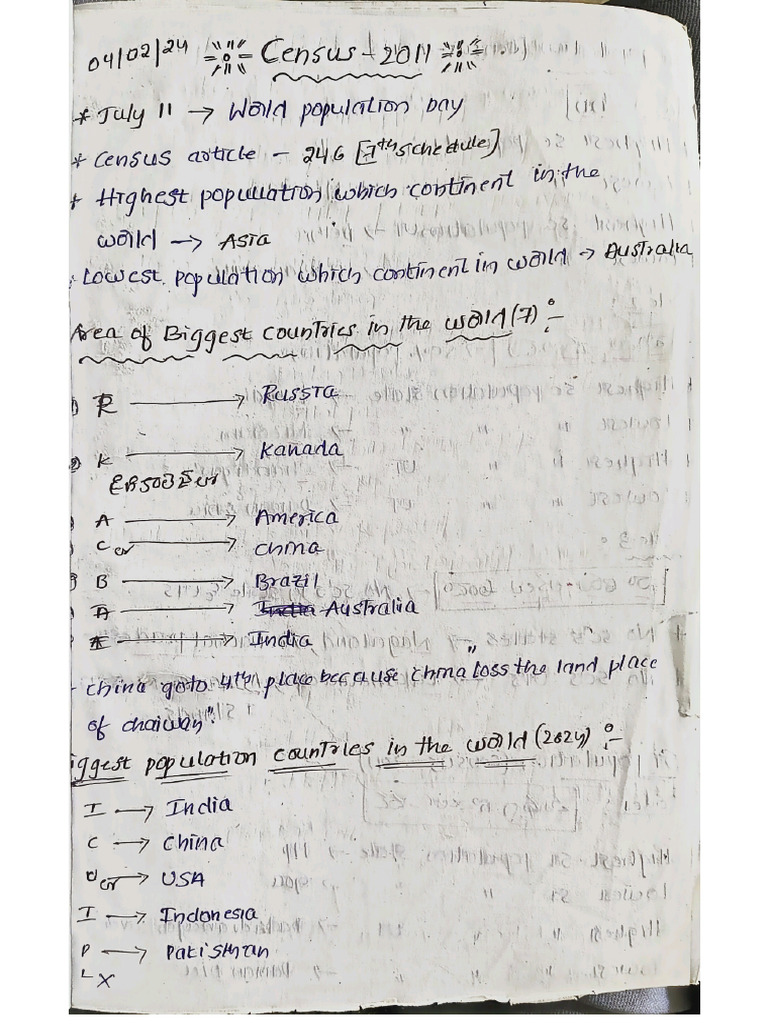 04/02/24 Census - 2011
* July 11 → World population Day
* Census article - 246 [7th schedule]
* Highest popullation which continent in the
world → Asia
* Lowest population which continent in world → Australia
Area of Biggest countries in the world (7) :-
1) R → Russia
2) K → Kanada
A → America
C → China
B → Brazil
A → Australia
I → India
- China goto 4th place because china loss the land place
of chaiwan".
iggest population countries in the world (2024) :-
I → India
C → China
U → USA
I → Indonesia
P → Pakisthan
L X